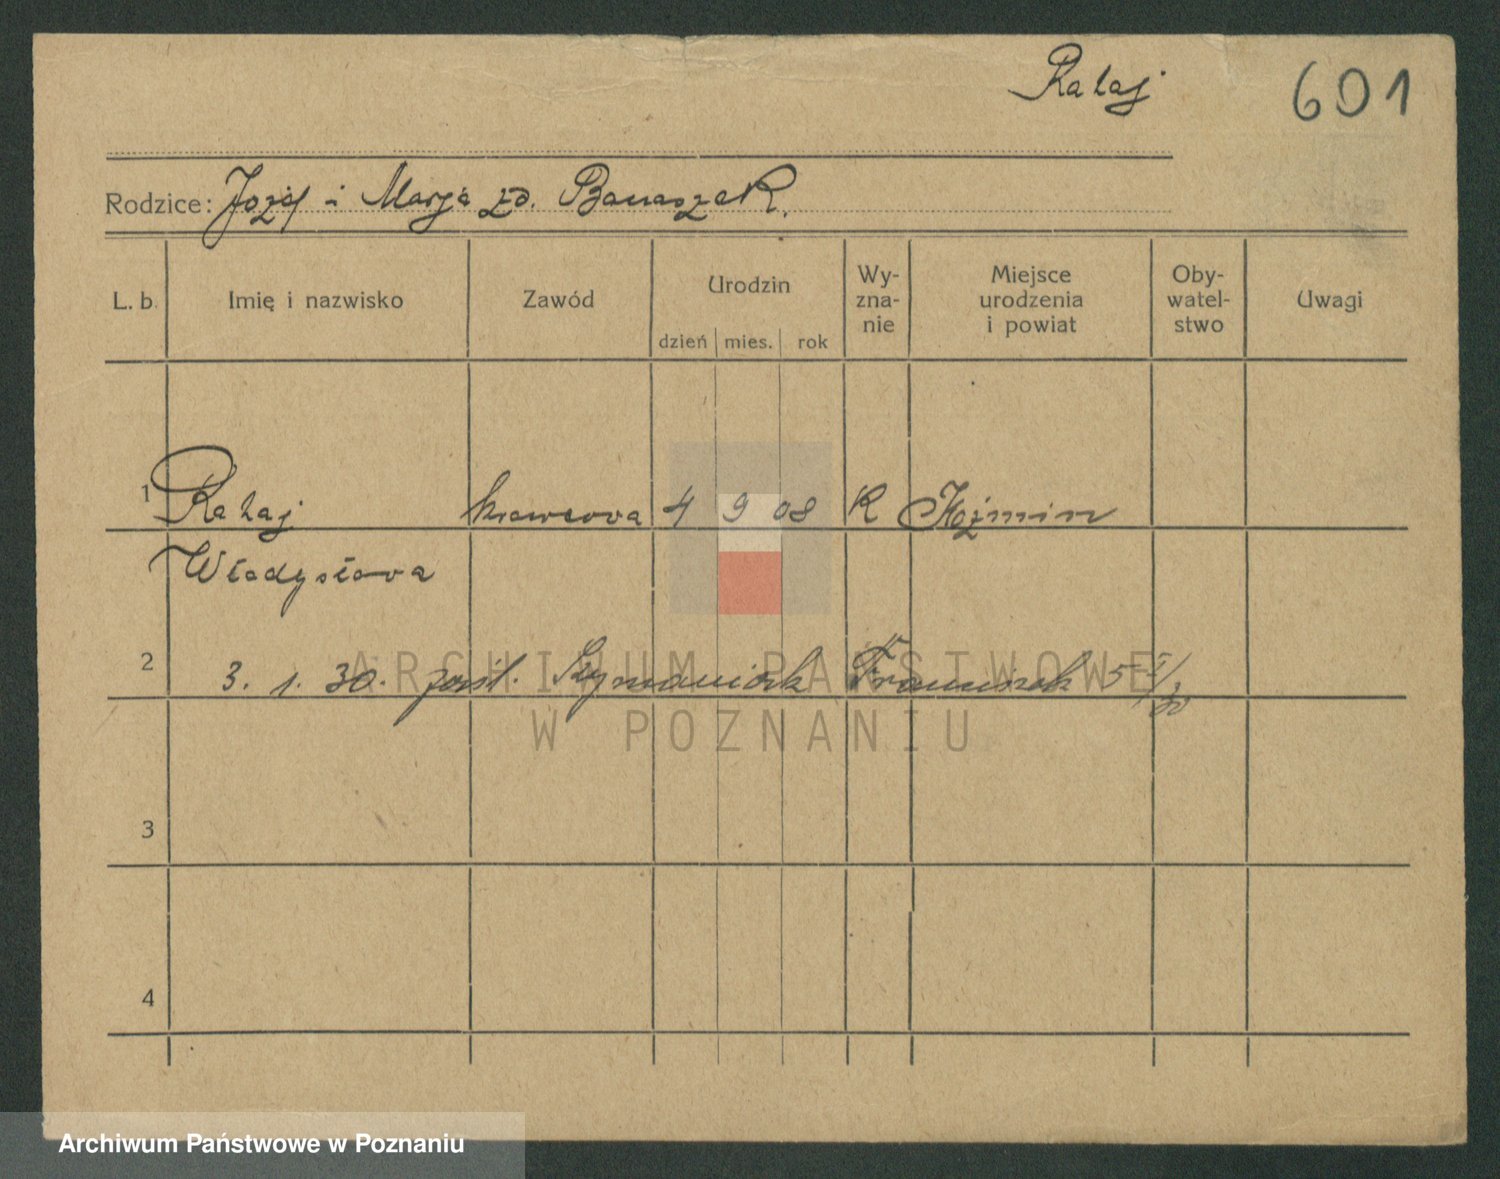 Rataj 601
Rodzice: Józef i Marja zd. Banaszak.
L. b. Imię i nazwisko Zawód Urodzin dzień mies. rok Wy-zna-nie Miejsce urodzenia i powiat Oby-watel-stwo Uwagi
1 Rataj krawcowa 4 9 08 R Koźmin
Władysława
2 3. 1. 30. Szymaniak Franciszek 5 I/30
ARCHIWUM PAŃSTWOWE
W POZNANIU
3
4
Archiwum Państwowe w Poznaniu